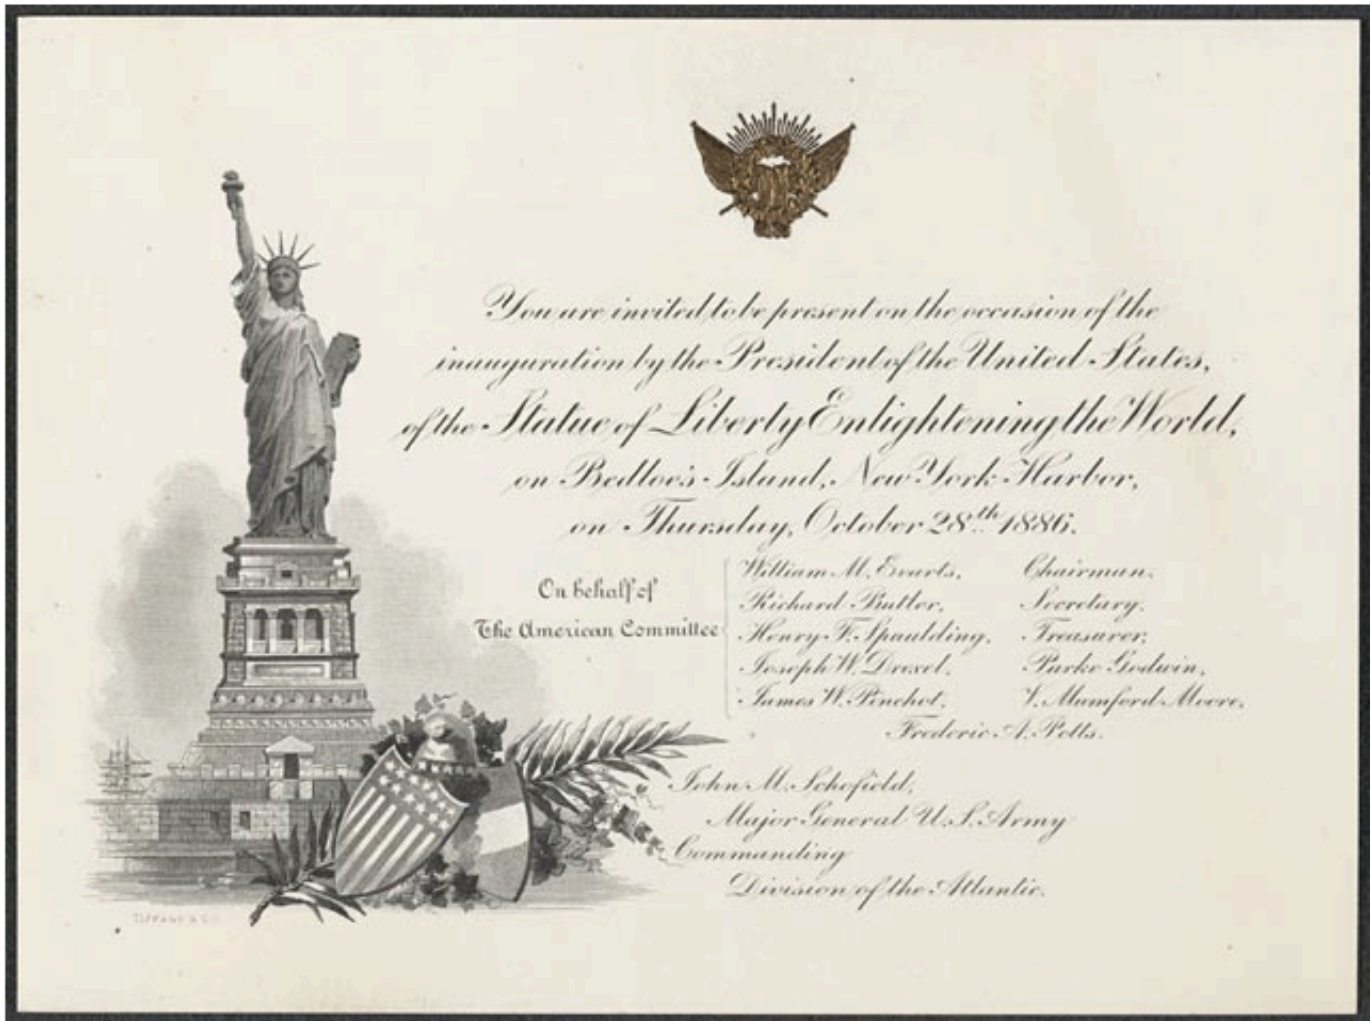 You are invited to be present on the occasion of the
inauguration by the President of the United States,
of the Statue of Liberty Enlightening the World,
on Bedloe's Island, New York Harbor,
on Thursday, October 28th 1886.
On behalf of
The American Committee
William M. Evarts, Chairman.
Richard Butler, Secretary.
Henry F. Spaulding, Treasurer,
Joseph W. Drexel, Parke Godwin,
James W. Pinchot, V. Mumford Moore,
Frederic A. Potts.
John M. Schofield,
Major General U.S. Army
Commanding
Division of the Atlantic.
TIFFANY & CO.